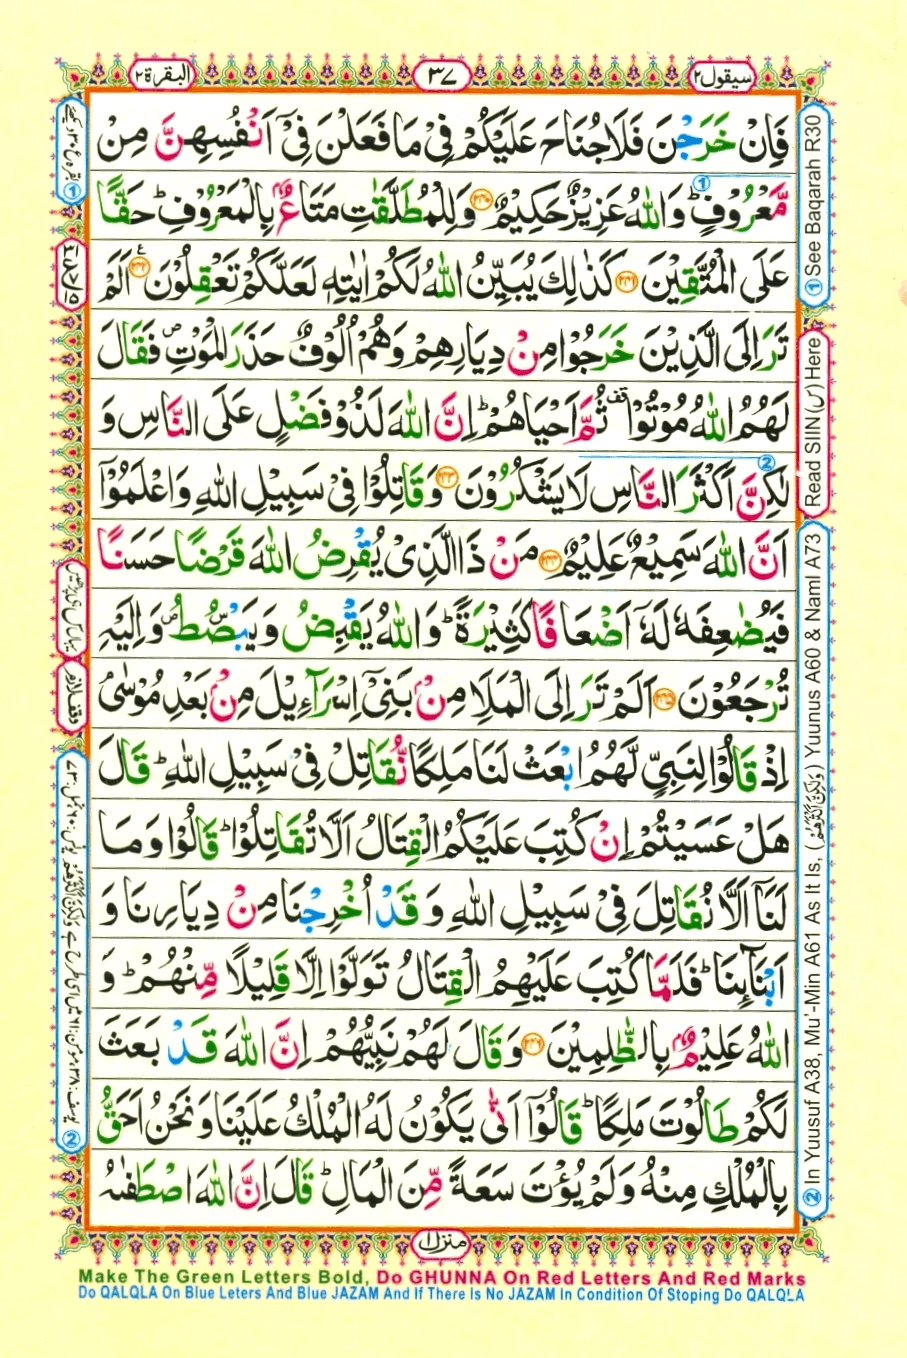 البقرة ٢
٣٧
سيقول ٢
فَاِنْ خَرَجْنَ فَلَا جُنَاحَ عَلَيْكُمْ فِيْ مَا فَعَلْنَ فِيْۤ اَنْفُسِهِنَّ مِنْ
مَّعْرُوْفٍ ؕ وَاللّٰهُ عَزِيْزٌ حَكِيْمٌ ۝۲۴۰ وَلِلْمُطَلَّقٰتِ مَتَاعٌۢ بِالْمَعْرُوْفِ ؕ حَقًّا
عَلَى الْمُتَّقِيْنَ ۝۲۴۱ كَذٰلِكَ يُبَيِّنُ اللّٰهُ لَكُمْ اٰيٰتِهٖ لَعَلَّكُمْ تَعْقِلُوْنَ ۝۲۴۲ اَلَمْ
تَرَ اِلَى الَّذِيْنَ خَرَجُوْا مِنْ دِيَارِهِمْ وَهُمْ اُلُوْفٌ حَذَرَ الْمَوْتِ ۪ فَقَالَ
لَهُمُ اللّٰهُ مُوْتُوْا ۫ ثُمَّ اَحْيَاهُمْ ؕ اِنَّ اللّٰهَ لَذُوْ فَضْلٍ عَلَى النَّاسِ وَ
لٰكِنَّ اَكْثَرَ النَّاسِ لَا يَشْكُرُوْنَ ۝۲۴۳ وَقَاتِلُوْا فِيْ سَبِيْلِ اللّٰهِ وَاعْلَمُوْۤا
اَنَّ اللّٰهَ سَمِيْعٌ عَلِيْمٌ ۝۲۴۴ مَنْ ذَا الَّذِيْ يُقْرِضُ اللّٰهَ قَرْضًا حَسَنًا
فَيُضٰعِفَهٗ لَهٗۤ اَضْعَافًا كَثِيْرَةً ؕ وَاللّٰهُ يَقْبِضُ وَيَبْصُۜطُ ۪ وَاِلَيْهِ
تُرْجَعُوْنَ ۝۲۴۵ اَلَمْ تَرَ اِلَى الْمَلَاِ مِنْۢ بَنِيْۤ اِسْرَآءِيْلَ مِنْۢ بَعْدِ مُوْسٰى
اِذْ قَالُوْا لِنَبِيٍّ لَّهُمُ ابْعَثْ لَنَا مَلِكًا نُّقَاتِلْ فِيْ سَبِيْلِ اللّٰهِ ؕ قَالَ
هَلْ عَسَيْتُمْ اِنْ كُتِبَ عَلَيْكُمُ الْقِتَالُ اَلَّا تُقَاتِلُوْا ؕ قَالُوْا وَمَا
لَنَاۤ اَلَّا نُقَاتِلَ فِيْ سَبِيْلِ اللّٰهِ وَ قَدْ اُخْرِجْنَا مِنْ دِيَارِنَا وَ
اَبْنَآئِنَا ؕ فَلَمَّا كُتِبَ عَلَيْهِمُ الْقِتَالُ تَوَلَّوْا اِلَّا قَلِيْلًا مِّنْهُمْ ؕ وَ
اللّٰهُ عَلِيْمٌۢ بِالظّٰلِمِيْنَ ۝۲۴۶ وَقَالَ لَهُمْ نَبِيُّهُمْ اِنَّ اللّٰهَ قَدْ بَعَثَ
لَكُمْ طَالُوْتَ مَلِكًا ؕ قَالُوْۤا اَنّٰى يَكُوْنُ لَهُ الْمُلْكُ عَلَيْنَا وَنَحْنُ اَحَقُّ
بِالْمُلْكِ مِنْهُ وَلَمْ يُؤْتَ سَعَةً مِّنَ الْمَالِ ؕ قَالَ اِنَّ اللّٰهَ اصْطَفٰىهُ
① See Baqarah R30
Read SIIN (س) Here
② In Yuusuf A38, Mu'-Min A61 As It Is, (وَلٰكِنَّ اَكْثَرَهُمْ) Yuunus A60 & Naml A73
منزل ١
Make The Green Letters Bold, Do GHUNNA On Red Letters And Red Marks
Do QALQLA On Blue Leters And Blue JAZAM And If There Is No JAZAM In Condition Of Stoping Do QALQLA